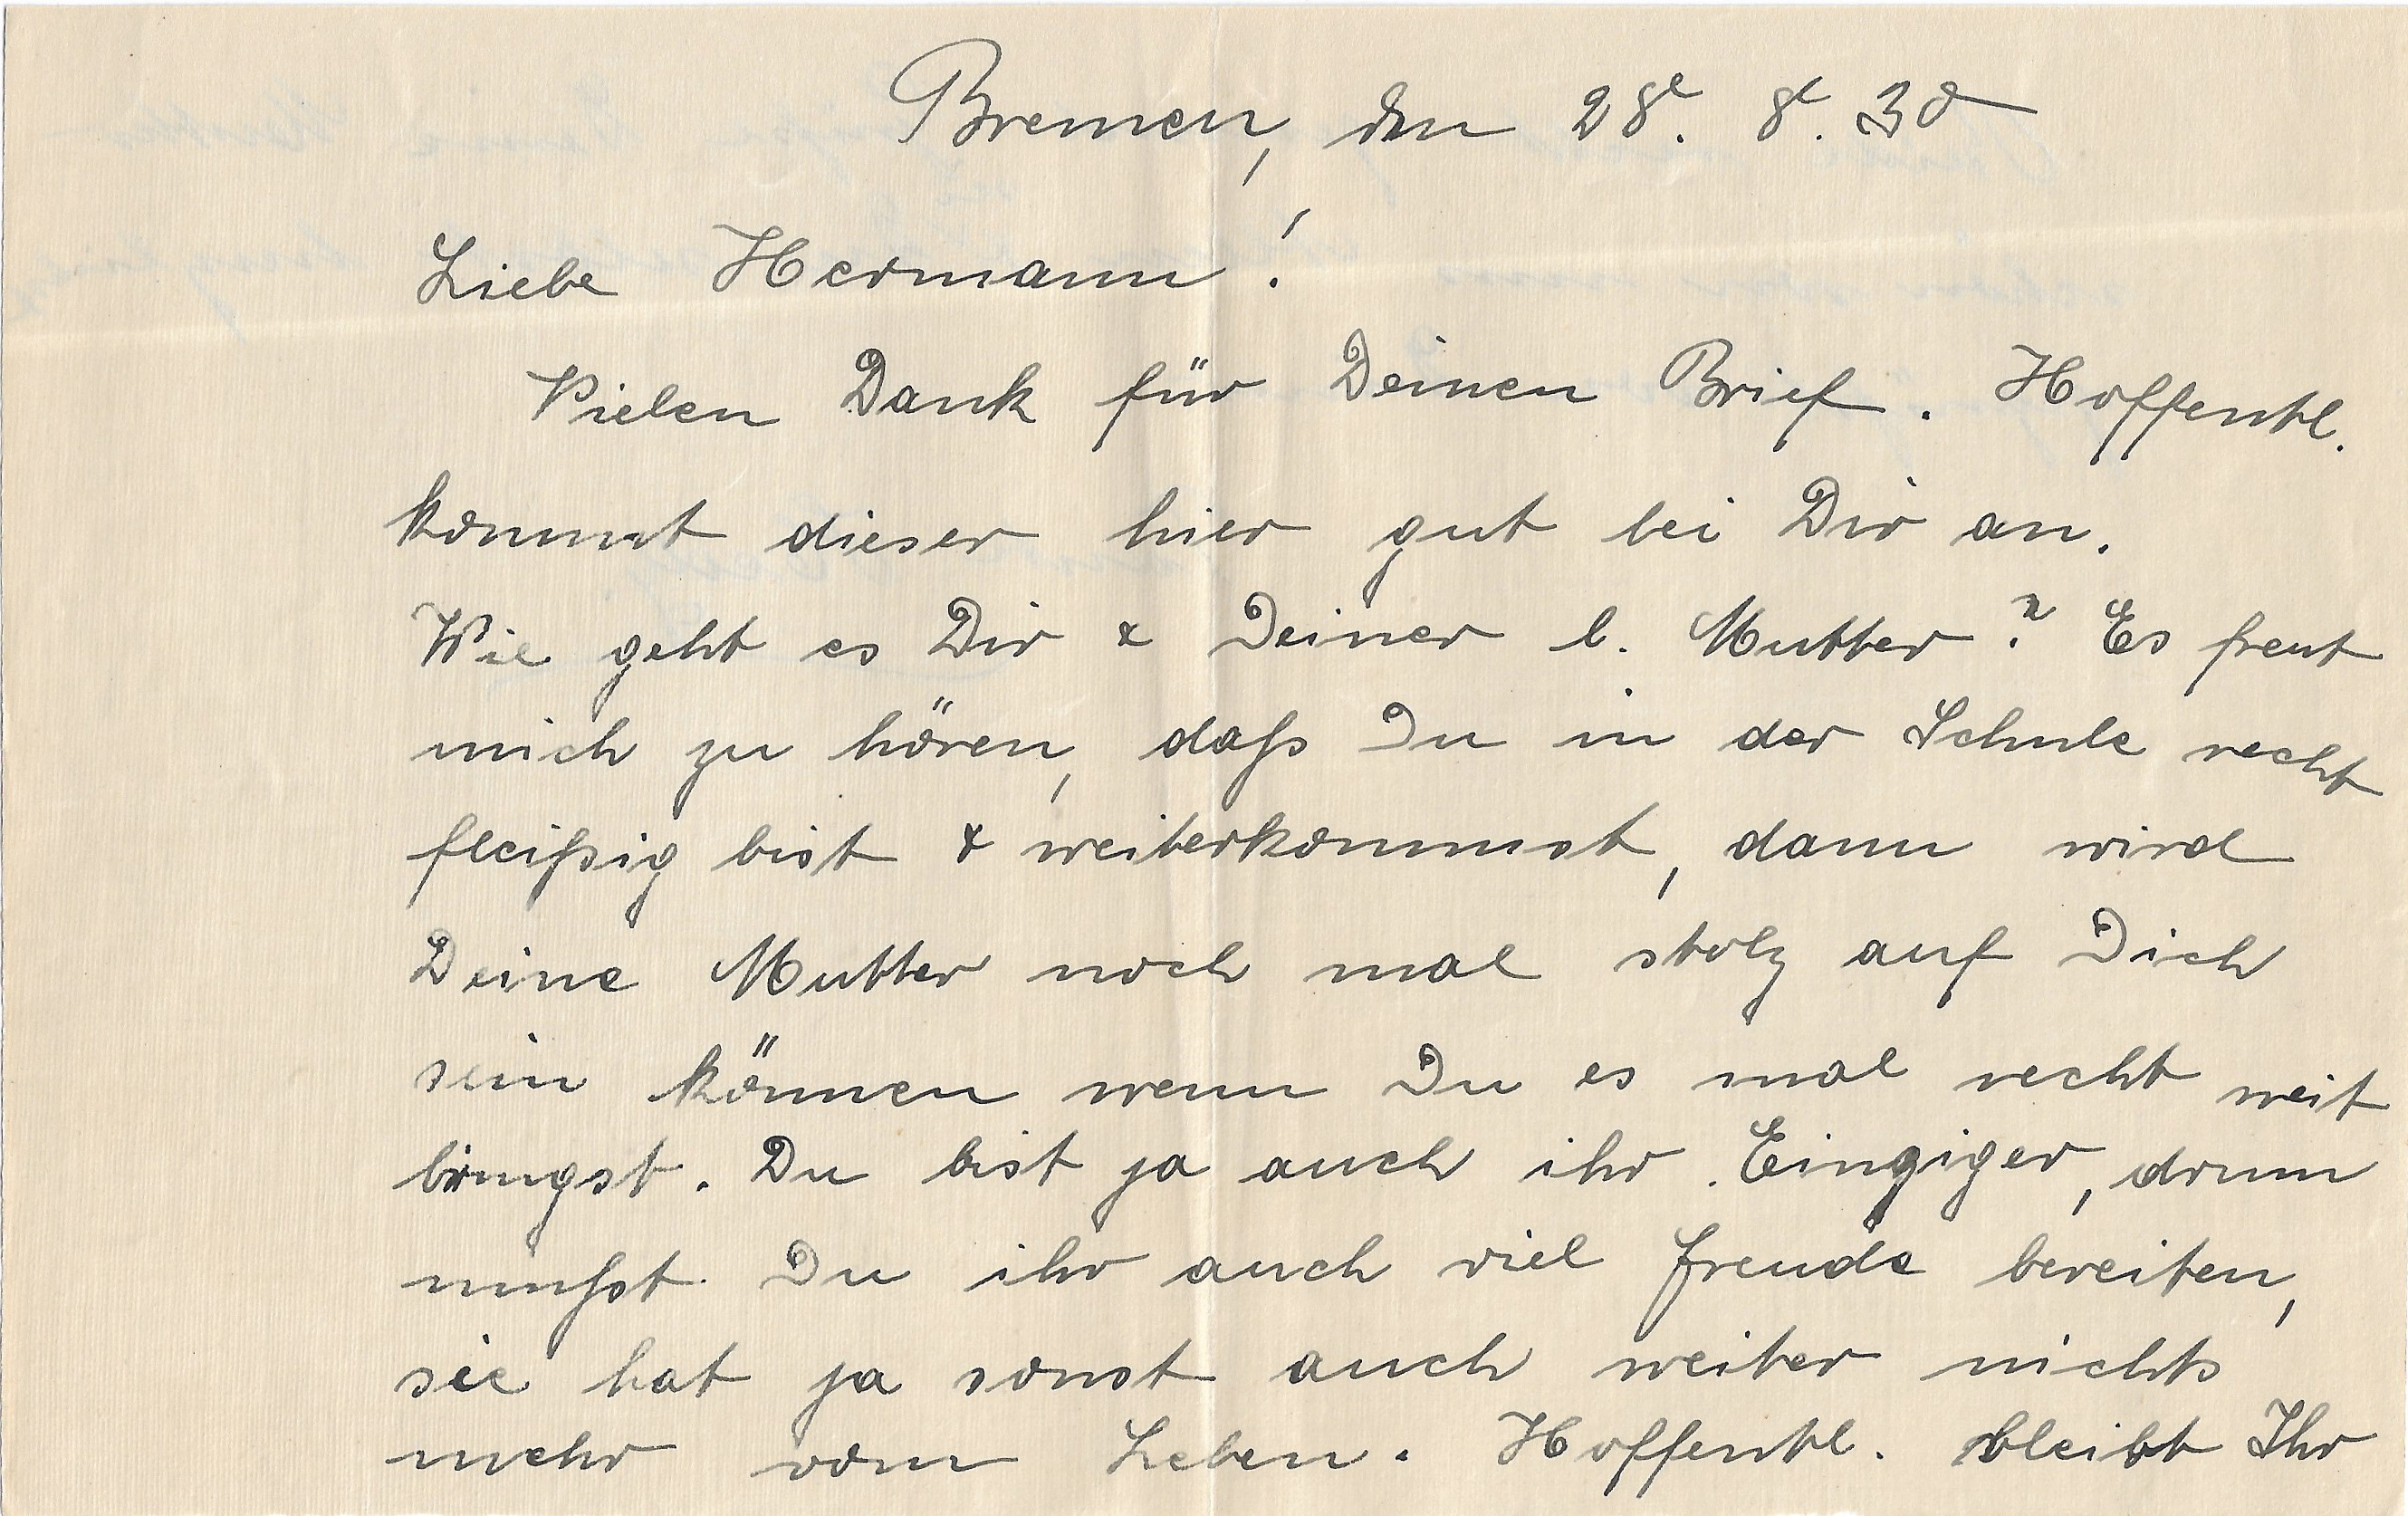 Bremen, den 28. 8. 30
Liebe Hermann!
Vielen Dank für Deinen Brief. Hoffentl.
kommt dieser hier gut bei Dir an.
Wie geht es Dir & Deiner l. Mutter? Es freut
mich zu hören, daß Du in der Schule recht
fleißig bist & weiterkommst, dann wird
Deine Mutter noch mal stolz auf Dich
sein können wenn Du es mal recht weit
bringst. Du bist ja auch ihr Einziger, drum
mußt Du ihr auch viel Freude bereiten,
sie hat ja sonst auch weiter nichts
mehr vom Leben. Hoffentl. bleibt Ihr